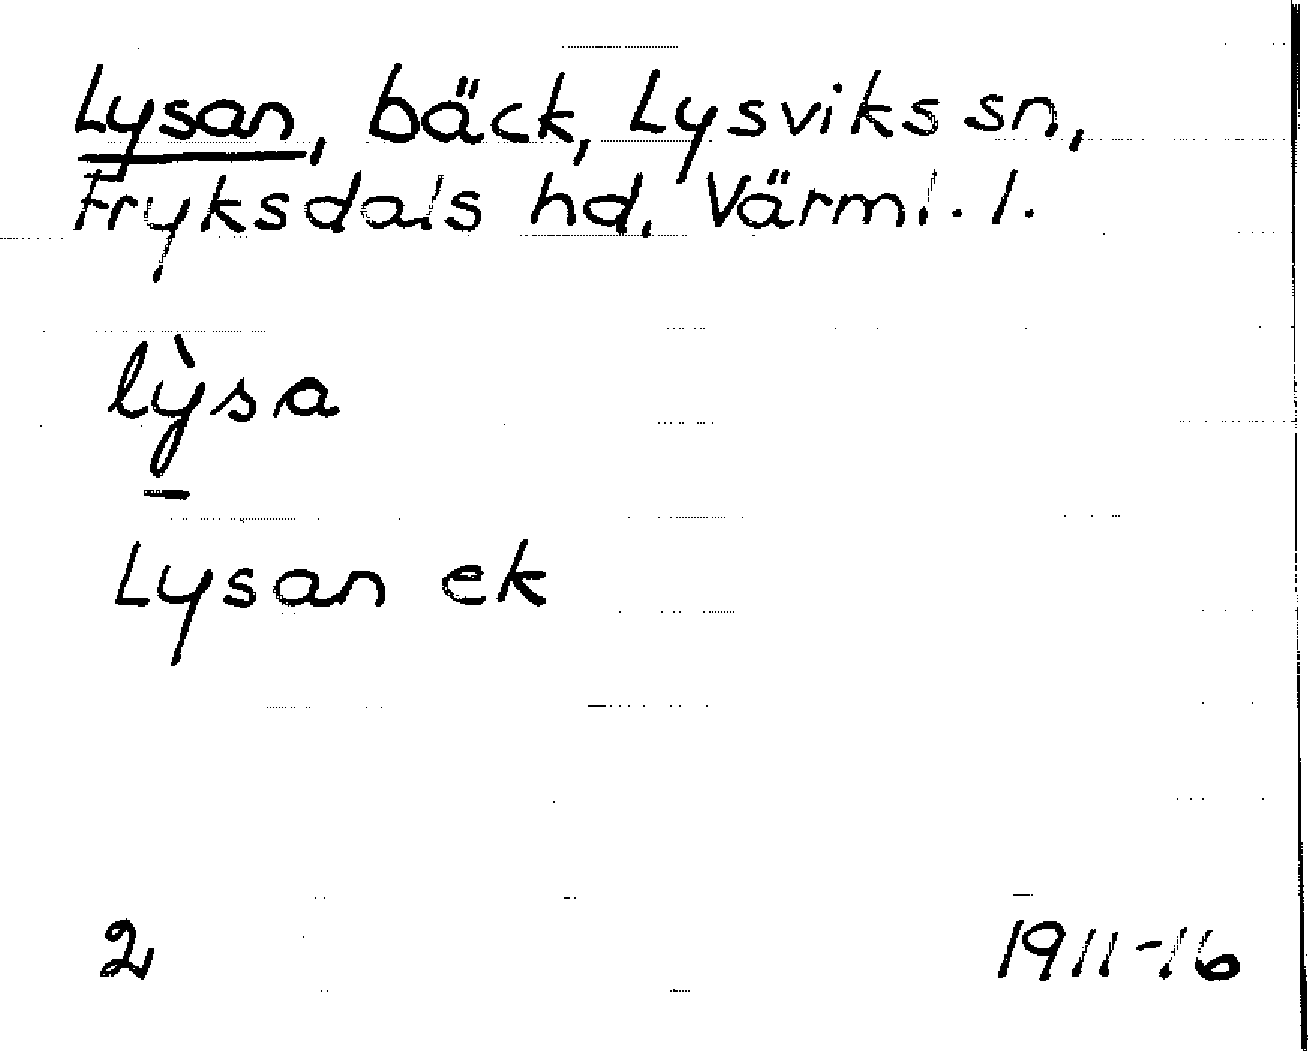 Lysan, bäck, Lysviks sn,
Fryksdals hd. Värml. l.
lỳsa
Lysan ek
2 1911-16